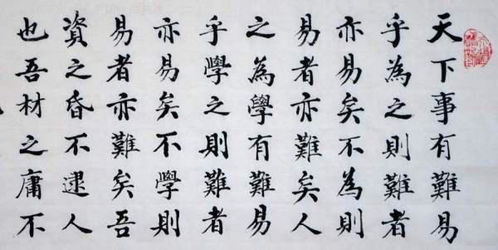 天下事有難易
乎為之則難者
亦易矣不為則
易者亦難矣人
之為學有難易
乎學之則難者
亦易矣不學則
易者亦難矣吾
資之昏不逮人
也吾材之庸不